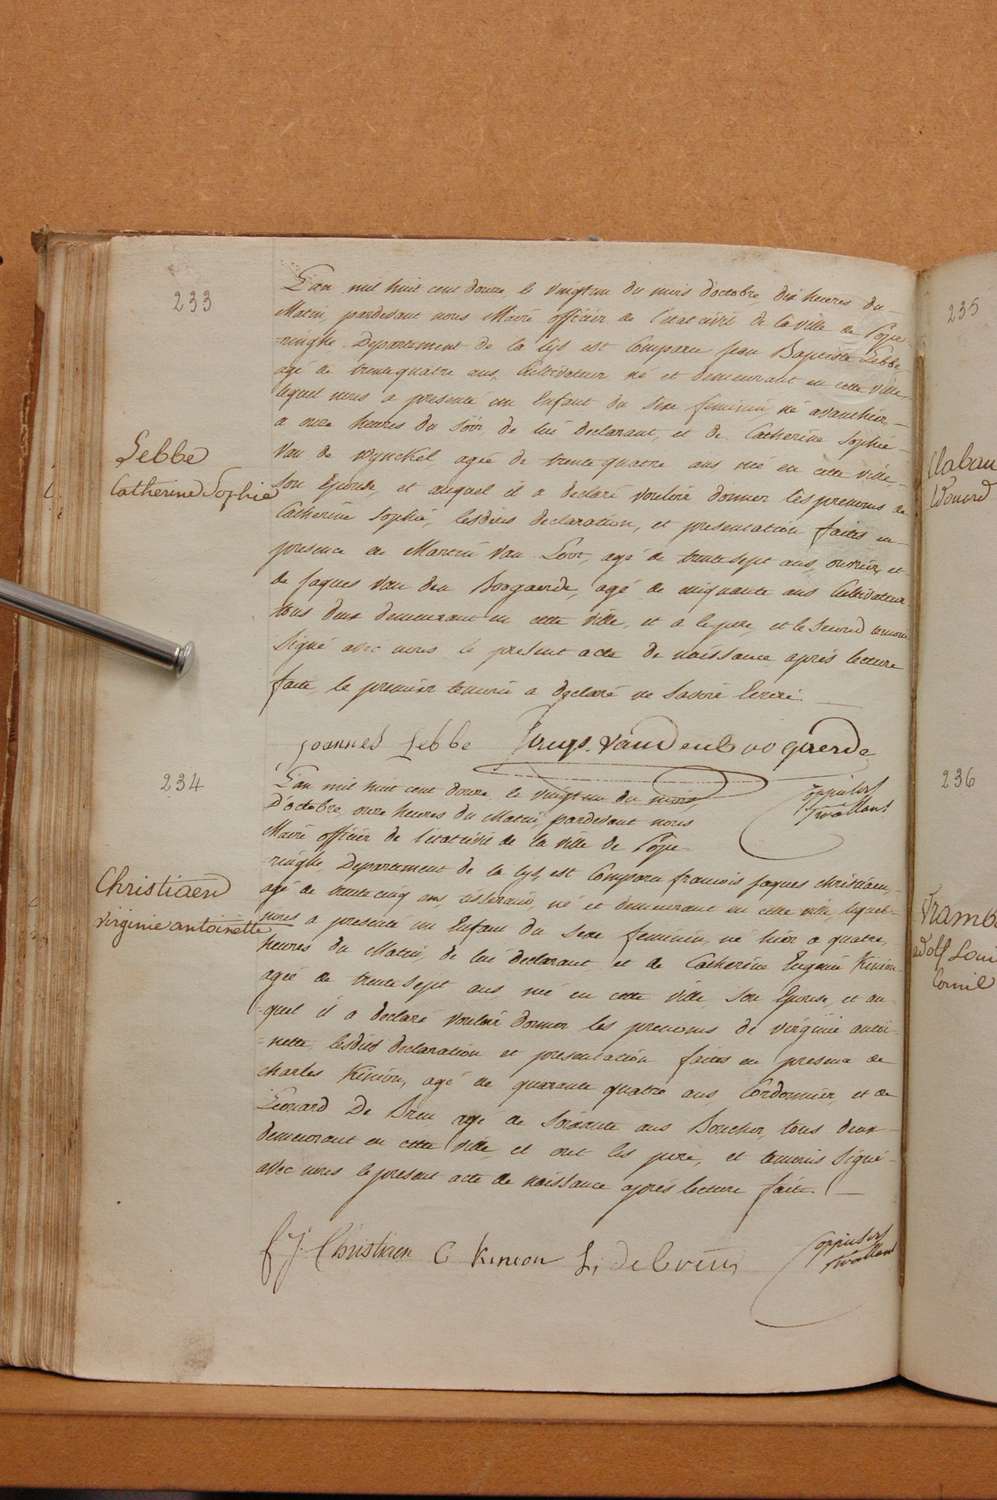 233
L'an mil huit cent douze le vingtun du mois d'octobre, dix heures du
Matin, pardevant nous Maire officier de l'etat civil de la ville de Pope
-ringhe Departement de la Lys est Comparu Jean Baptiste Lebbe
agé de trentequatre ans, Cultivateur né et demeurant en cette ville
lequel nous a presenté un Enfant du Sexe feminin né avanthier,
a onze heures du Soir, de lui declarant, et de Catherine Sophie
Van de Wynckel agée de trente quatre ans née en cette ville
Son Epouse, et auquel il a declaré vouloir donner les prenoms de
Catherine Sophie, lesdites declaration, et presentation faites en
presence de Martin Van Loot, agé de trentesept ans, ouvrier, et
de Jaques Van den Boogaerde, agé de cinquante ans Cultivateur
tous deux demeurant en cette ville, et a le pere, et le Second temoin
Signé avec nous le present acte de naissance après lecture
faite, le premier temoin a declaré ne Savoir Ecrire.
Lebbe
Catherine Sophie
joannes Lebbe Jacys. Vandenboogaerde
234
L'an mil huit cent douze le vingtun du mois
D'octobre, onze heures du Matin, pardevant nous
Maire officier de l'etat civil de la ville de Pope
-ringhe, Departement de la Lys, est Comparu francois Jaques Christiaen,
agé de trente cinq ans, tisserand, né et demeurant en cette ville, lequel
nous a presenté un Enfant du Sexe feminin, né hier a quatre
heures du Matin, de lui declarant et de Catherine Eugenie Kinion
agée de trente Sept ans née en cette ville Son Epouse, et au-
-quel il a declaré vouloir donner les prenoms de virginie antoi-
-nette, lesdites declaration et presentation faites en presence de
charles Kinion, agé de quarante quatre ans Cordonnier, et de
Léonard De Breu agé de Soixante ans Boucher, tous deux
demeurant en cette ville, et ont les pere, et temoins Signé
avec nous le present acte de naissance après lecture faite.
Christiaen
Virginie antoinette
f J. Christiaen C Kinion L,
235
Clabau
Edouard
236
Adolf Loui
Cornil